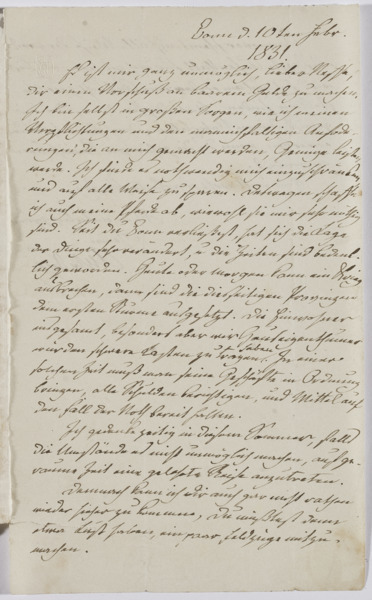 Bonn d. 10ten Febr.
1831
Es ist mir ganz unmöglich, lieber Neffe,
dir einen Vorschuß an baarem Gelde zu machen.
Ich bin selbst in großen Sorgen, wie ich meinen
Verpflichtungen und den mannichfaltigen Anforde-
rungen, die an mich gemacht werden, Genüge leisten
werde. Ich finde es nothwendig mich einzuschränken
und auf alle Weise zu sparen. Deswegen schaffe
ich auch meine Pferde ab, wiewohl sie mir sehr nöthig
sind. Seit du Bonn verließest, hat sich die Lage
der Dinge sehr verändert, u die Zeiten sind bedenk-
lich geworden. Heute oder morgen kann ein Krieg
ausbrechen, dann sind die diesseitigen Provinzen
dem ersten Sturme ausgesetzt. Die Einwohner
insgesamt, besonders aber wir Hauseigenthümer
würden schwere Lasten zu tragen haben. In einer
solchen Zeit muß man seine Geschäfte in Ordnung
bringen, alle Schulden berichtigen, und Mittel auf
den Fall der Noth bereit halten.
Ich gedenke zeitig in diesem Sommer, falls
die Umstände es nicht unmöglich machen, auf ge-
raume Zeit eine gelehrte Reise anzutreten.
Demnach kann ich dir auch gar nicht rathen
wieder hieher zu kommen, du müßtest denn
etwa Lust haben, ein paar Feldzüge mitzu-
machen.